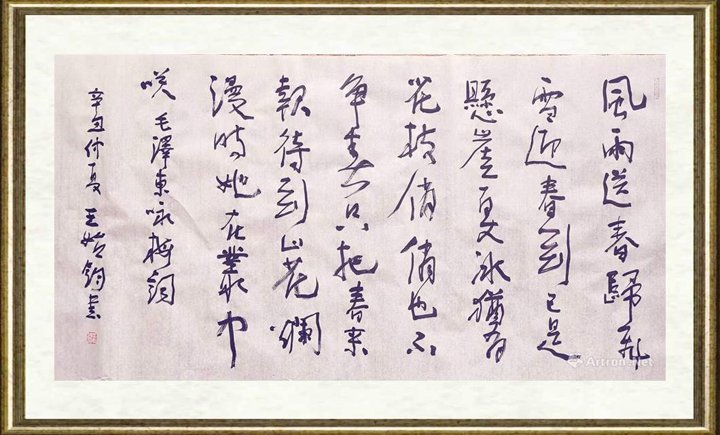 風雨送春歸飛
雪迎春到已是
懸崖百丈冰猶有
花枝俏俏也不
争春只把春来
報待到山花爛
漫時她在叢中
咲 毛澤東咏梅詞
辛丑仲夏 王鈞書
Artron.net